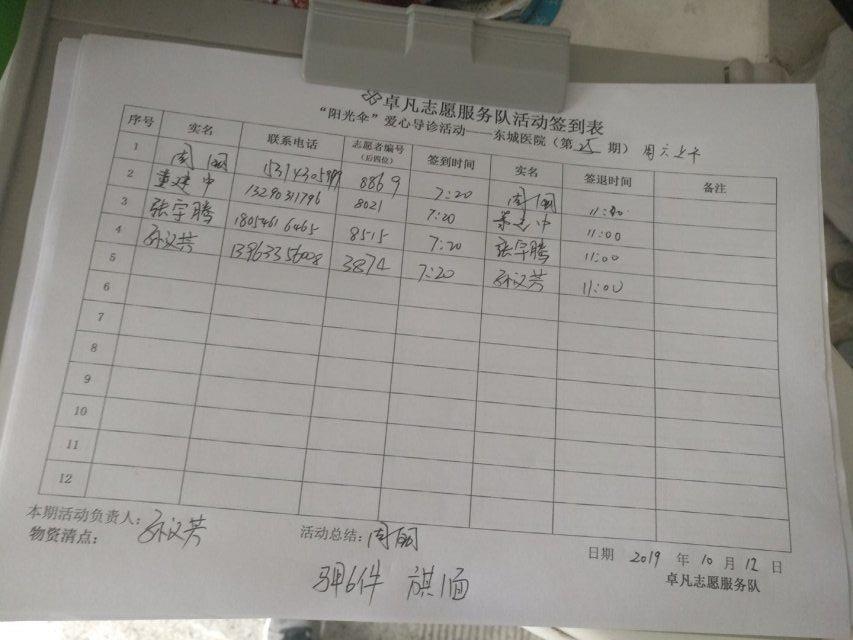 卓凡志愿服务队活动签到表
“阳光伞”爱心导诊活动——东城医院（第 期） 周六上午
序号 实名 联系电话 志愿者编号（后四位） 签到时间 实名 签退时间 备注
1 周 8869 7:20 周 11:00
2 董建中 13290311796 8021 7:20 董建中 11:00
3 张宇腾 18054616465 8515 7:20 张宇腾 11:00
4 孙汉芸 13963356008 3874 7:20 孙汉芸 11:00
5
6
7
8
9
10
11
12
本期活动负责人：孙汉芸 活动总结：周
物资清点：
马甲6件 旗1面
日期 2019 年 10 月 12 日
卓凡志愿服务队